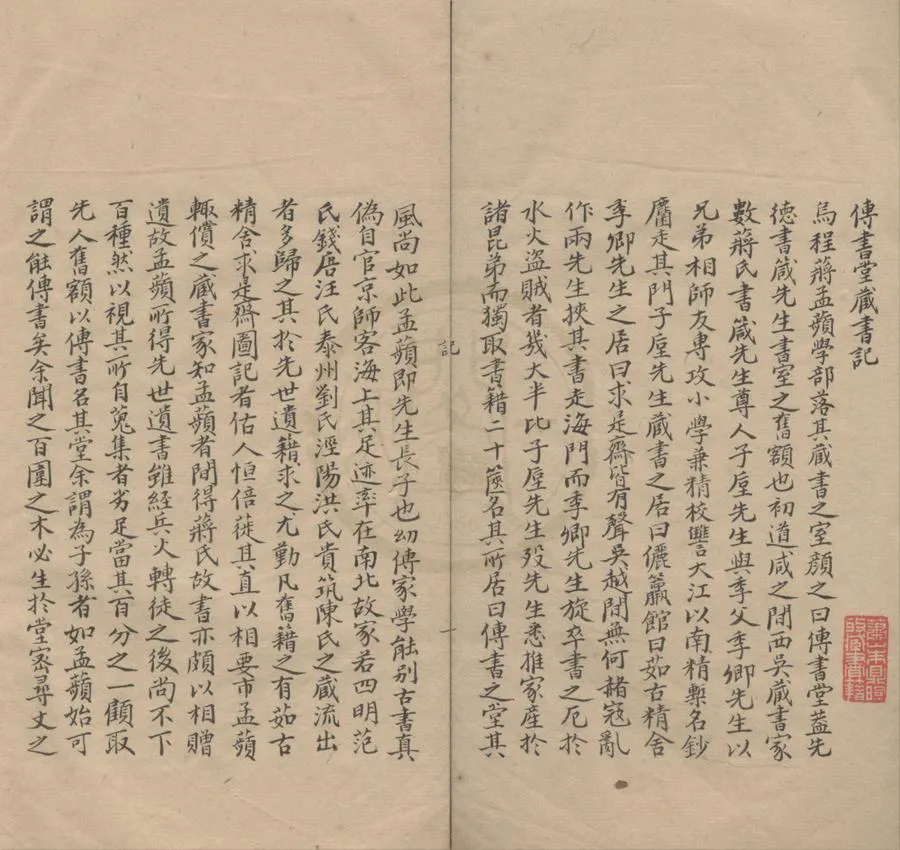 傳書堂藏書記
烏程蔣孟蘋學部落其藏書之室顏之曰傳書堂蓋先
德書箴先生書室之舊額也初道咸之間西吳藏書家
數蔣氏書箴先生尊人子垕先生與季父季卿先生以
兄弟相師友專攻小學兼精校讎言大江以南精槧名鈔
麕走其門子垕先生藏書之居曰儷籯館曰茹古精舍
季卿先生之居曰求是齋皆有聲吳越間無何赭寇亂
作兩先生挾其書走海門而季卿先生旋卒書之厄於
水火盜賊者幾大半比子垕先生歿先生悉推家產於
諸昆弟而獨取書籍二十篋名其所居曰傳書之堂其
記
一
風尚如此孟蘋即先生長子也幼傳家學能別古書真
偽自官京師客海上其足迹率在南北故家若四明范
氏錢唐汪氏泰州劉氏涇陽洪氏貴筑陳氏之藏流出
者多歸之其於先世遺籍求之尤勤凡舊籍之有茹古
精舍求是齋圖記者估人恒倍蓰其直以相要市孟蘋
輒償之藏書家知孟蘋者間得蔣氏故書亦頗以相贈
遺故孟蘋所得先世遺書雖經兵火轉徙之後尚不下
百種然以視其所自蒐集者劣足當其百分之一顧取
先人舊額以傳書名其堂余謂為子孫者如孟蘋始可
謂之能傳書矣余聞之百圍之木必生於堂密尋丈之